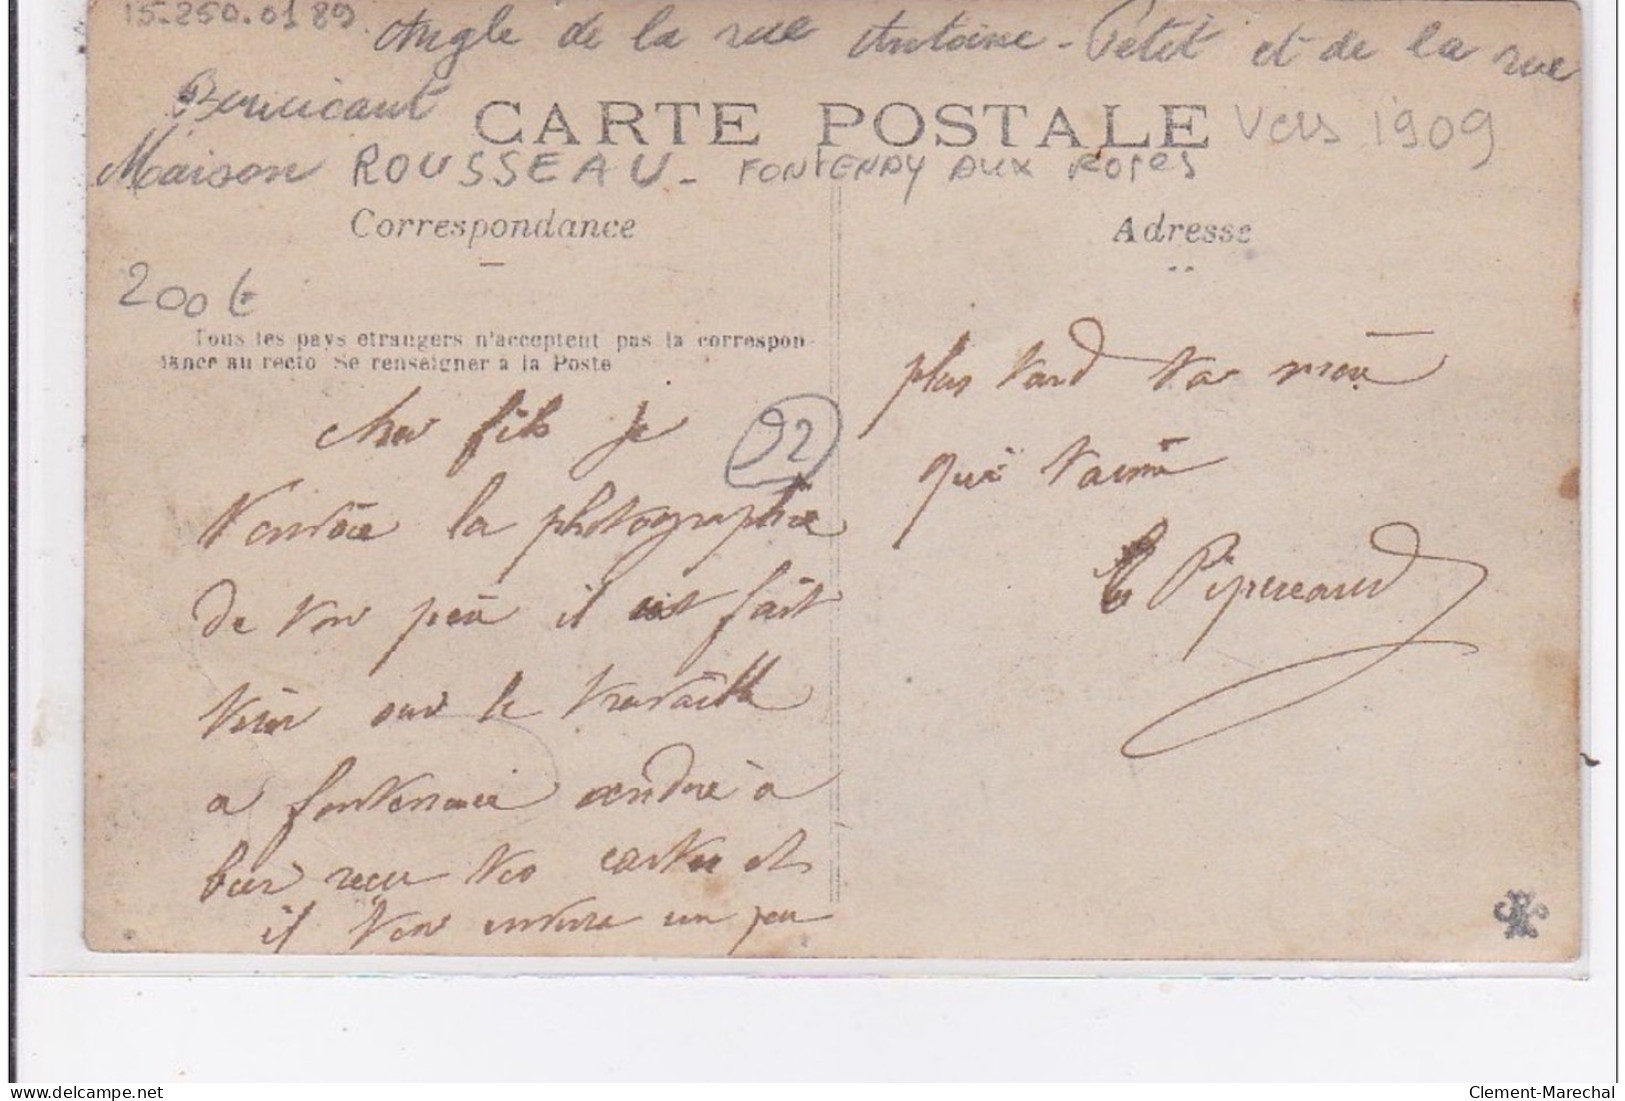 15-250.0189
Angle de la rue Antoine-Petit et de la rue
Boucicaut
CARTE POSTALE
Vers 1909
Maison ROUSSEAU - FONTENAY AUX ROSES
Correspondance
Adresse
200€
Tous les pays etrangers n'acceptent pas la correspon-
dance au recto Se renseigner à la Poste
cher fils je
92
t'envoie la photographie
de ton père il est fait
tirer sur le travaille
a fontenaie andré a
bien reçu tes cartes et
il t'en enverra un peu
plus tard ta mère
qui t'aime
Pipereaud
delcampe.net
Clement-Marechal